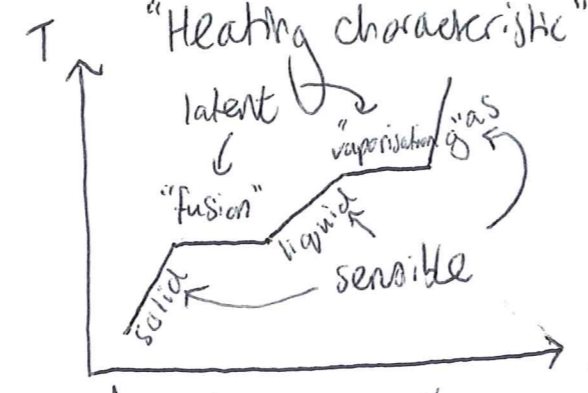 T
"Heating characteristic"
latent
"vaporisation"
gas
"fusion"
liquid
sensible
solid